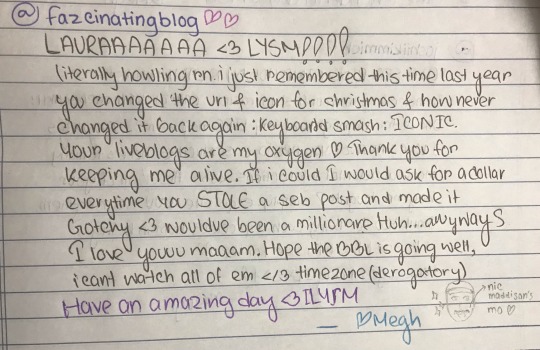 @ fazcinatingblog ♡♡
LAURAAAAAAA <3 LYSM!!!!
literally howling rn. i just remembered this time last year
you changed the url & icon for christmas & how never
changed it back again :keyboard smash: ICONIC.
Your liveblogs are my oxygen ♡ Thank you for
keeping me alive. If i could I would ask for a dollar
everytime you STOLE a seb post and made it
Gotchy <3 wouldve been a millionare Huh...anyways
I love youuu maaam. Hope the BBL is going well,
icant watch all of em </3 timezone (derogatory)
Have an amazing day <3 ILYSM
nic
maddison's
mo ♡
— ♡Megh